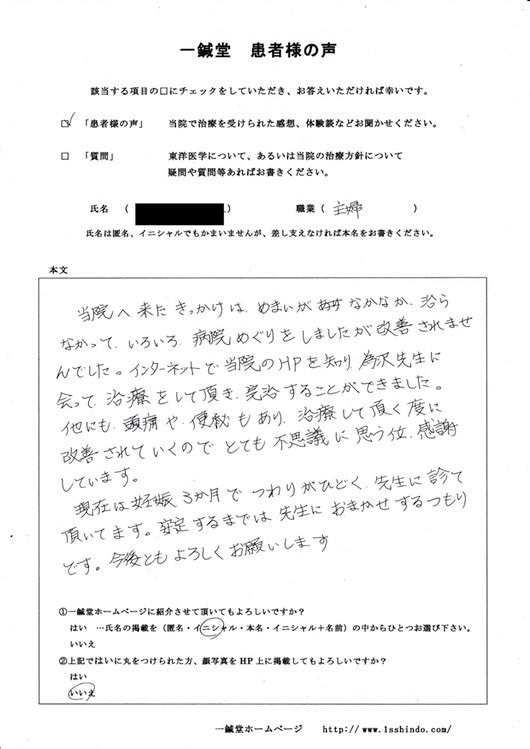 一鍼堂　患者様の声
該当する項目の□にチェックをしていただき、お答えいただければ幸いです。
☑「患者様の声」　当院で治療を受けられた感想、体験談などお聞かせください。
□「質問」　東洋医学について、あるいは当院の治療方針について
疑問や質問等あればお書きください。
氏名　（　　　）　職業（　主婦　）
氏名は匿名、イニシャルでもかまいませんが、差し支えなければ本名をお書きください。
本文
当院へ来たきっかけは、めまいが なかなか、治ら
なかって、いろいろ、病院めぐりをしましたが改善されませ
んでした。インターネットで当院のHPを知り為沢先生に
会って、治療をして頂き、完治することができました。
他にも、頭痛や、便秘もあり、治療して頂く度に
改善されていくのでとても不思議に思う位、感謝
しています。
現在は妊娠3か月でつわりがひどく、先生に診て
頂いてます。安定するまでは、先生におまかせするつもり
です。今後ともよろしくお願いします
①一鍼堂ホームページに紹介させて頂いてもよろしいですか？
はい　…氏名の掲載を（匿名・イニシャル・本名・イニシャル＋名前）の中からひとつお選び下さい。
いいえ
②上記ではいに丸をつけられた方、顔写真をHP上に掲載してもよろしいですか？
はい
いいえ
一鍼堂ホームページ　http://www.1sshindo.com/